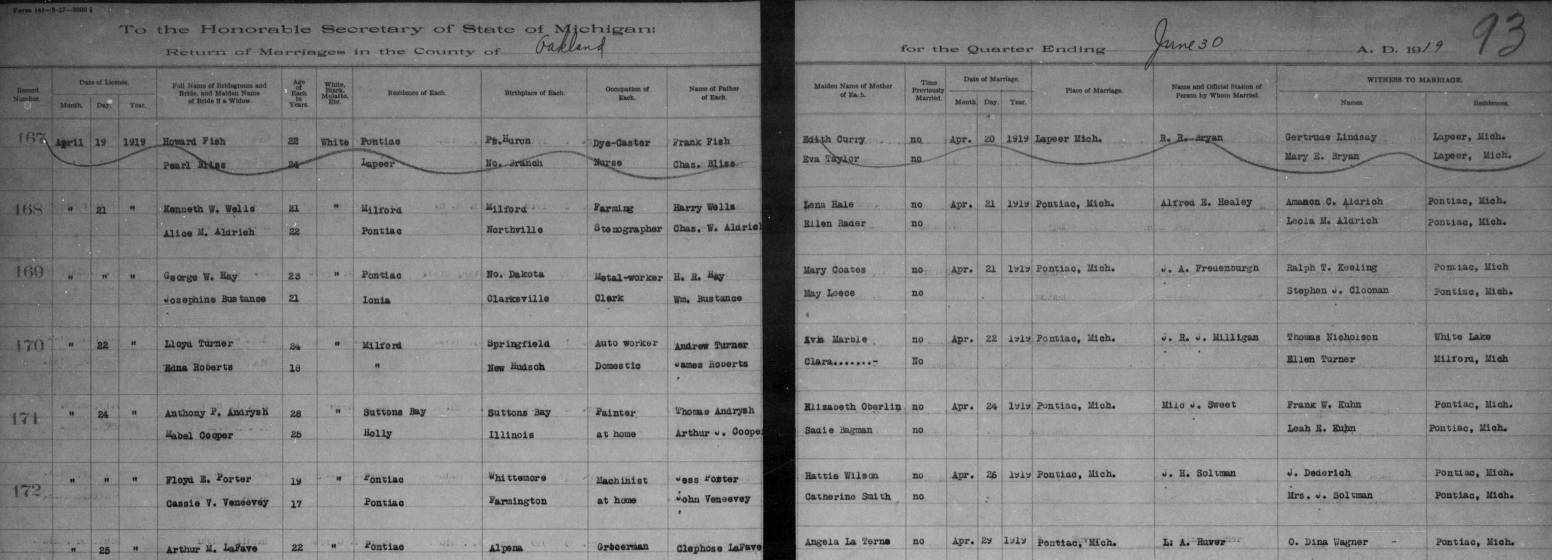 Form 161-8-17-2000 §
To the Honorable Secretary of State of Michigan:
Return of Marriages in the County of Oakland for the Quarter Ending June 30 A. D. 1919 93
Record Number. Date of License. Month. Day. Year. Full Name of Bridegroom and Bride, and Maiden Name of Bride if a Widow. Age of Each in Years. White, Black, Mulatto, Etc. Residence of Each. Birthplace of Each. Occupation of Each. Name of Father of Each. Maiden Name of Mother of Each. Time Previously Married. Date of Marriage. Month Day. Year. Place of Marriage. Name and Official Station of Person by Whom Married. WITNESS TO MARRIAGE. Names. Residences.
167 April 19 1919 Howard Fish 22 White Pontiac Pt. Huron Dye-Caster Frank Fish Edith Curry no Apr. 20 1919 Lapeer Mich. R. R. Bryan Gertrude Lindsay Lapeer, Mich.
Pearl Bliss 24 Lapeer No. Branch Nurse Chas. Bliss Eva Taylor no Mary E. Bryan Lapeer, Mich.
168 " 21 " Kenneth W. Wells 21 " Milford Milford Farming Harry Wells Lena Hale no Apr. 21 1919 Pontiac, Mich. Alfred E. Healey Amanon C. Aldrich Pontiac, Mich.
Alice M. Aldrich 22 Pontiac Northville Stenographer Chas. W. Aldrich Ellen Rader no Leola M. Aldrich Pontiac, Mich.
169 " " " George W. Hay 23 " Pontiac No. Dakota Metal-worker H. R. Hay Mary Coates no Apr. 21 1919 Pontiac, Mich. J. A. Fredenburgh Ralph T. Keeling Pontiac, Mich
Josephine Bustance 21 Ionia Clarksville Clerk Wm. Bustance May Loece no Stephen J. Cloonan Pontiac, Mich.
170 " 22 " Lloyd Turner 24 " Milford Springfield Auto worker Andrew Turner Avis Marble no Apr. 22 1919 Pontiac, Mich. J. R. J. Milligan Thomas Nicholson White Lake
Edna Roberts 18 " New Hudson Domestic James Roberts Clara.......- No Ellen Turner Milford, Mich
171 " 24 " Anthony P. Andrysh 28 " Suttons Bay Suttons Bay Painter Thomas Andrysh Elizabeth Oberlin no Apr. 24 1919 Pontiac, Mich. Milo J. Sweet Frank W. Kuhn Pontiac, Mich.
Mabel Cooper 25 Holly Illinois at home Arthur J. Cooper Sadie Bagman no Leah E. Kuhn Pontiac, Mich.
172 " " " Floyd E. Porter 19 " Pontiac Whittemore Machinist Jess Porter Hattie Wilson no Apr. 26 1919 Pontiac, Mich. J. H. Soltman J. Dederich Pontiac, Mich.
Cassie V. Veneevey 17 Pontiac Farmington at home John Veneevey Catherine Smith no Mrs. J. Soltman Pontiac, Mich.
" 25 " Arthur M. LaFave 22 " Pontiac Alpena Groceryman Clephose LaFave Angela La Terne no Apr. 29 1919 Pontiac, Mich. L. A. Huver O. Dina Wagner - Pontiac, Mich.